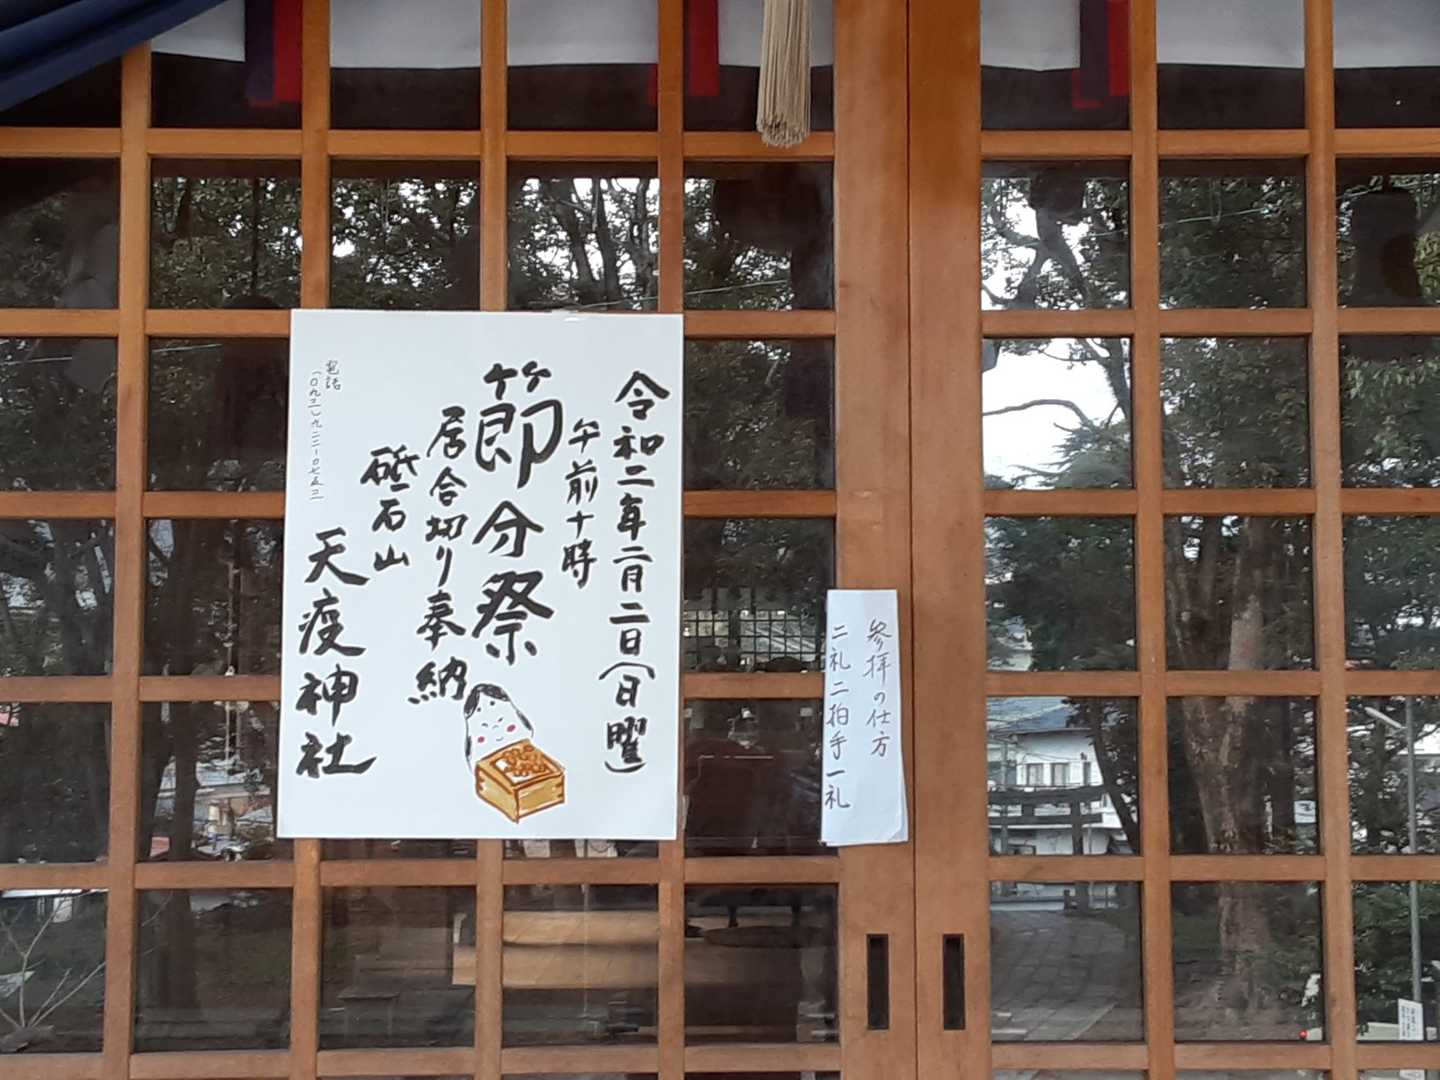 令和二年二月二日(日曜)
午前十時
節分祭
居合切り奉納
砥石山
天疫神社
電話
参拝の仕方
二礼二拍手一礼